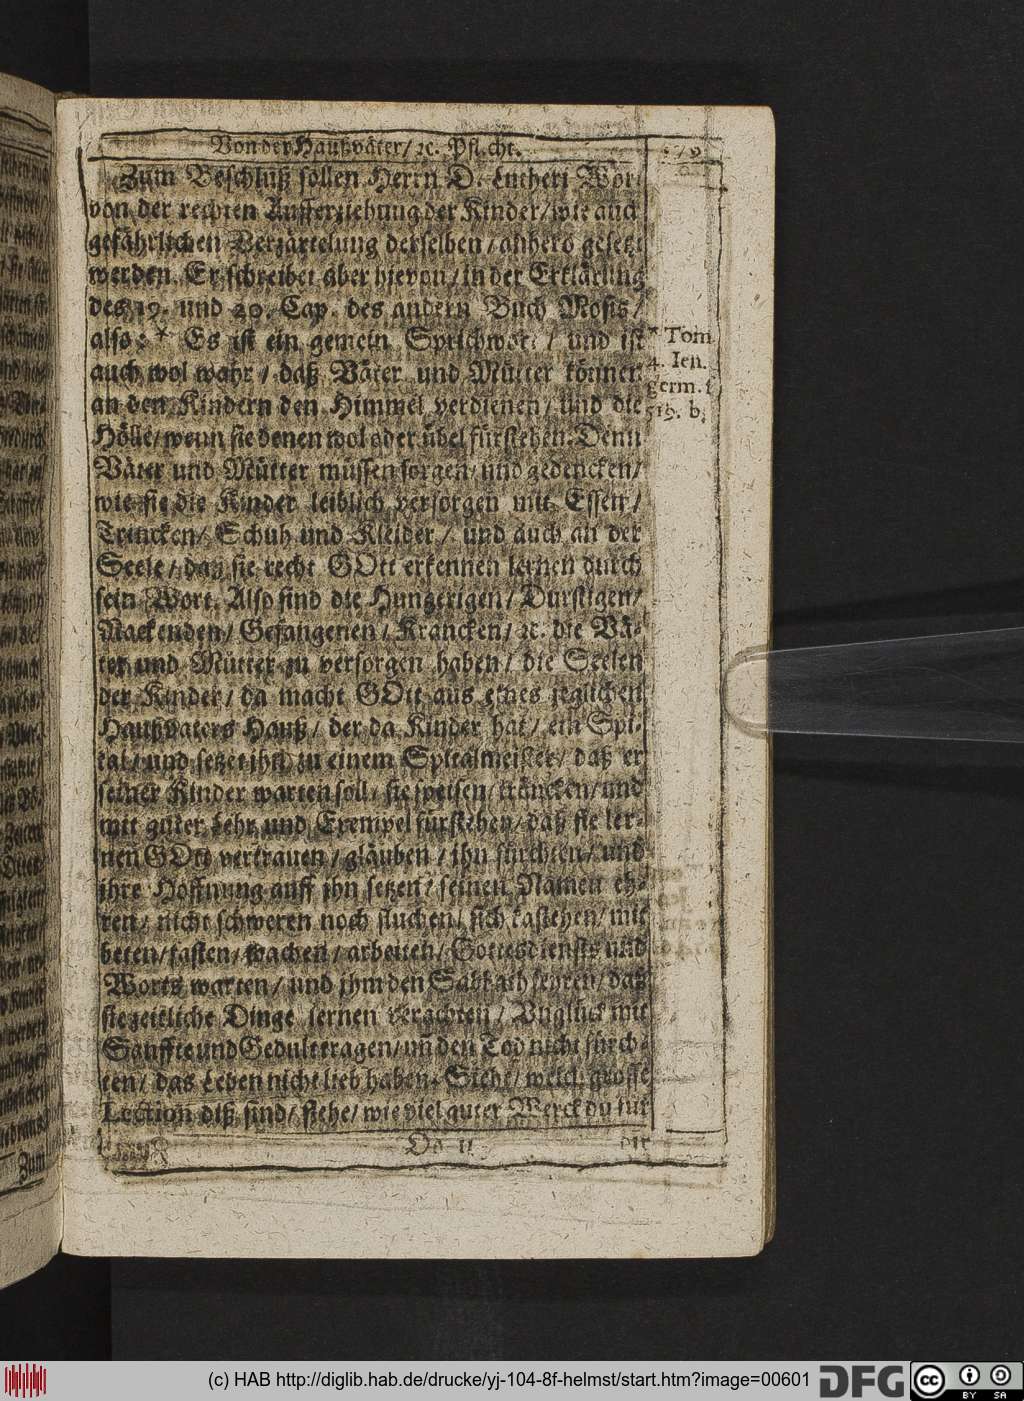 Von der Haußväter/ ꝛc. Pflicht. 579
Zum Beschluß sollen Herrn D. Lutheri Wort
von der rechten Aufferziehung der Kinder/ wie auch
gefährlichen Verzärtelung derselben/ anhero gesetzt
werden. Er schreibet aber hievon/ in der Erklärung
des 19. und 20. Cap. des andern Buch Mosis/
also: * Es ist ein gemein Sprichwort/ und ist
auch wol wahr/ daß Väter und Mütter können
an den Kindern den Himmel verdienen/ und die
Hölle/ wenn sie denen wol oder übel fürstehen. Denn
Väter und Mütter müssen sorgen/ und gedencken/
wie sie die Kinder leiblich versorgen mit Essen/
Trincken/ Schuh und Kleider/ und auch an der
Seele/ daß sie recht GOtt erkennen lernen durch
sein Wort. Also sind die Hungerigen/ Durstigen/
Nackenden/ Gefangenen/ Krancken/ ꝛc. die Vä-
ter und Mütter zu versorgen haben/ die Seelen
der Kinder/ da macht GOtt aus eines jeglichen
Haußvaters Hauß/ der da Kinder hat/ ein Spi-
tal/ und setzet ihn zu einem Spitalmeister/ daß er
seiner Kinder warten soll/ sie speisen/ träncken/ und
mit guter Lehr und Exempel fürstehen/ daß sie ler-
nen GOtt vertrauen/ gläuben/ ihn fürchten/ und
ihre Hoffnung auff ihn setzen/ seinen Namen eh-
ren/ nicht schweren noch fluchen/ sich kasteyen/ mit
beten/ fasten/ wachen/ arbeiten/ Gottesdiensts und
Worts warten/ und ihm den Sabbath feyren/ daß
sie zeitliche Dinge lernen verachten/ Unglück mit
Sanffte und Gedult tragen/ uñ den Tod nicht fürch-
ten/ das Leben nicht lieb haben. Siehe/ welch grosse
Lection diß sind/ siehe/ wie viel guter Werck du für
Oo ii dir
* Tom.
4. Ien.
germ. f.
519. b.
Zum
(c) HAB http://diglib.hab.de/drucke/yj-104-8f-helmst/start.htm?image=00601
DFG
cc BY SA